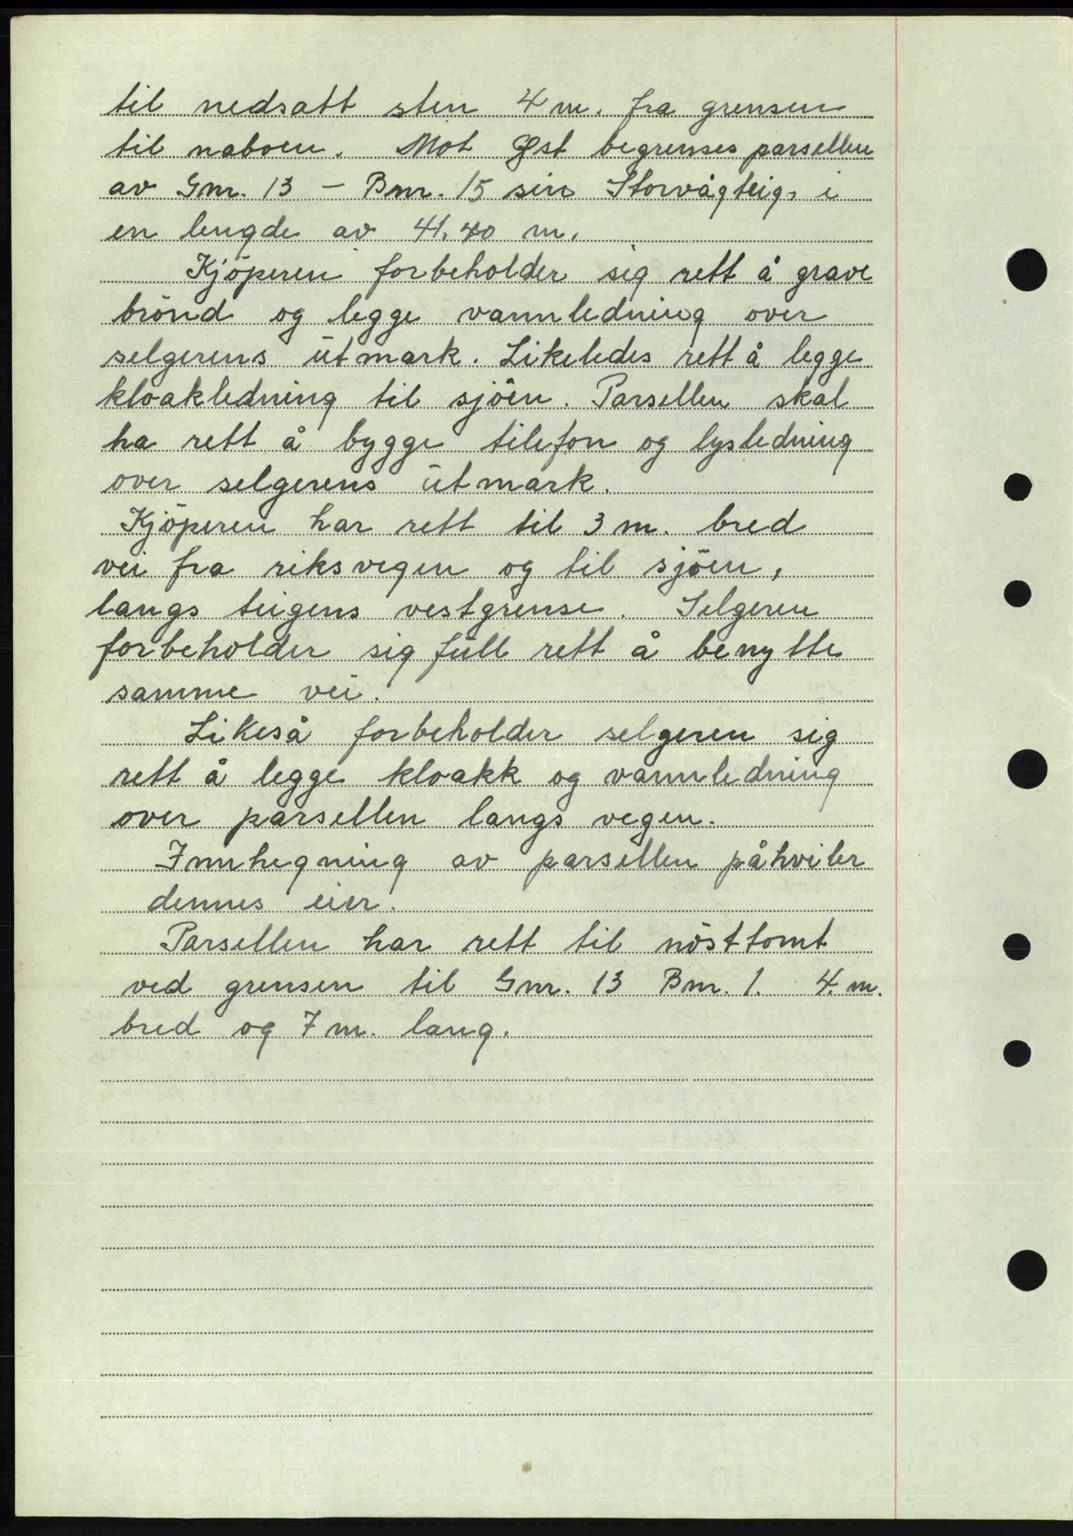 til nedsatt sten 4 m. fra grensen
til naboen. Mot Øst begrenses parsellen
av Gnr. 13 - Bnr. 15 sin Storvågteig, i
en lengde av 41.40 m.
Kjöperen forbeholder sig rett å grave
brönd og legge vannledning over
selgerens utmark. Likeledes rett å legge
kloakledning til sjöen. Parsellen skal
ha rett å bygge telefon og lysledning
over selgerens utmark.
Kjöperen har rett til 3 m. bred
vei fra riksvegen og til sjöen,
langs teigens vestgrense. Selgeren
forbeholder sig full rett å benytte
samme vei.
Likeså forbeholder selgeren sig
rett å legge kloakk og vannledning
over parsellen langs vegen.
Innhegning av parsellen påhviler
dennes eier.
Parsellen har rett til nösttomt
ved grensen til Gnr. 13 Bnr. 1. 4. m.
bred og 7 m. lang.